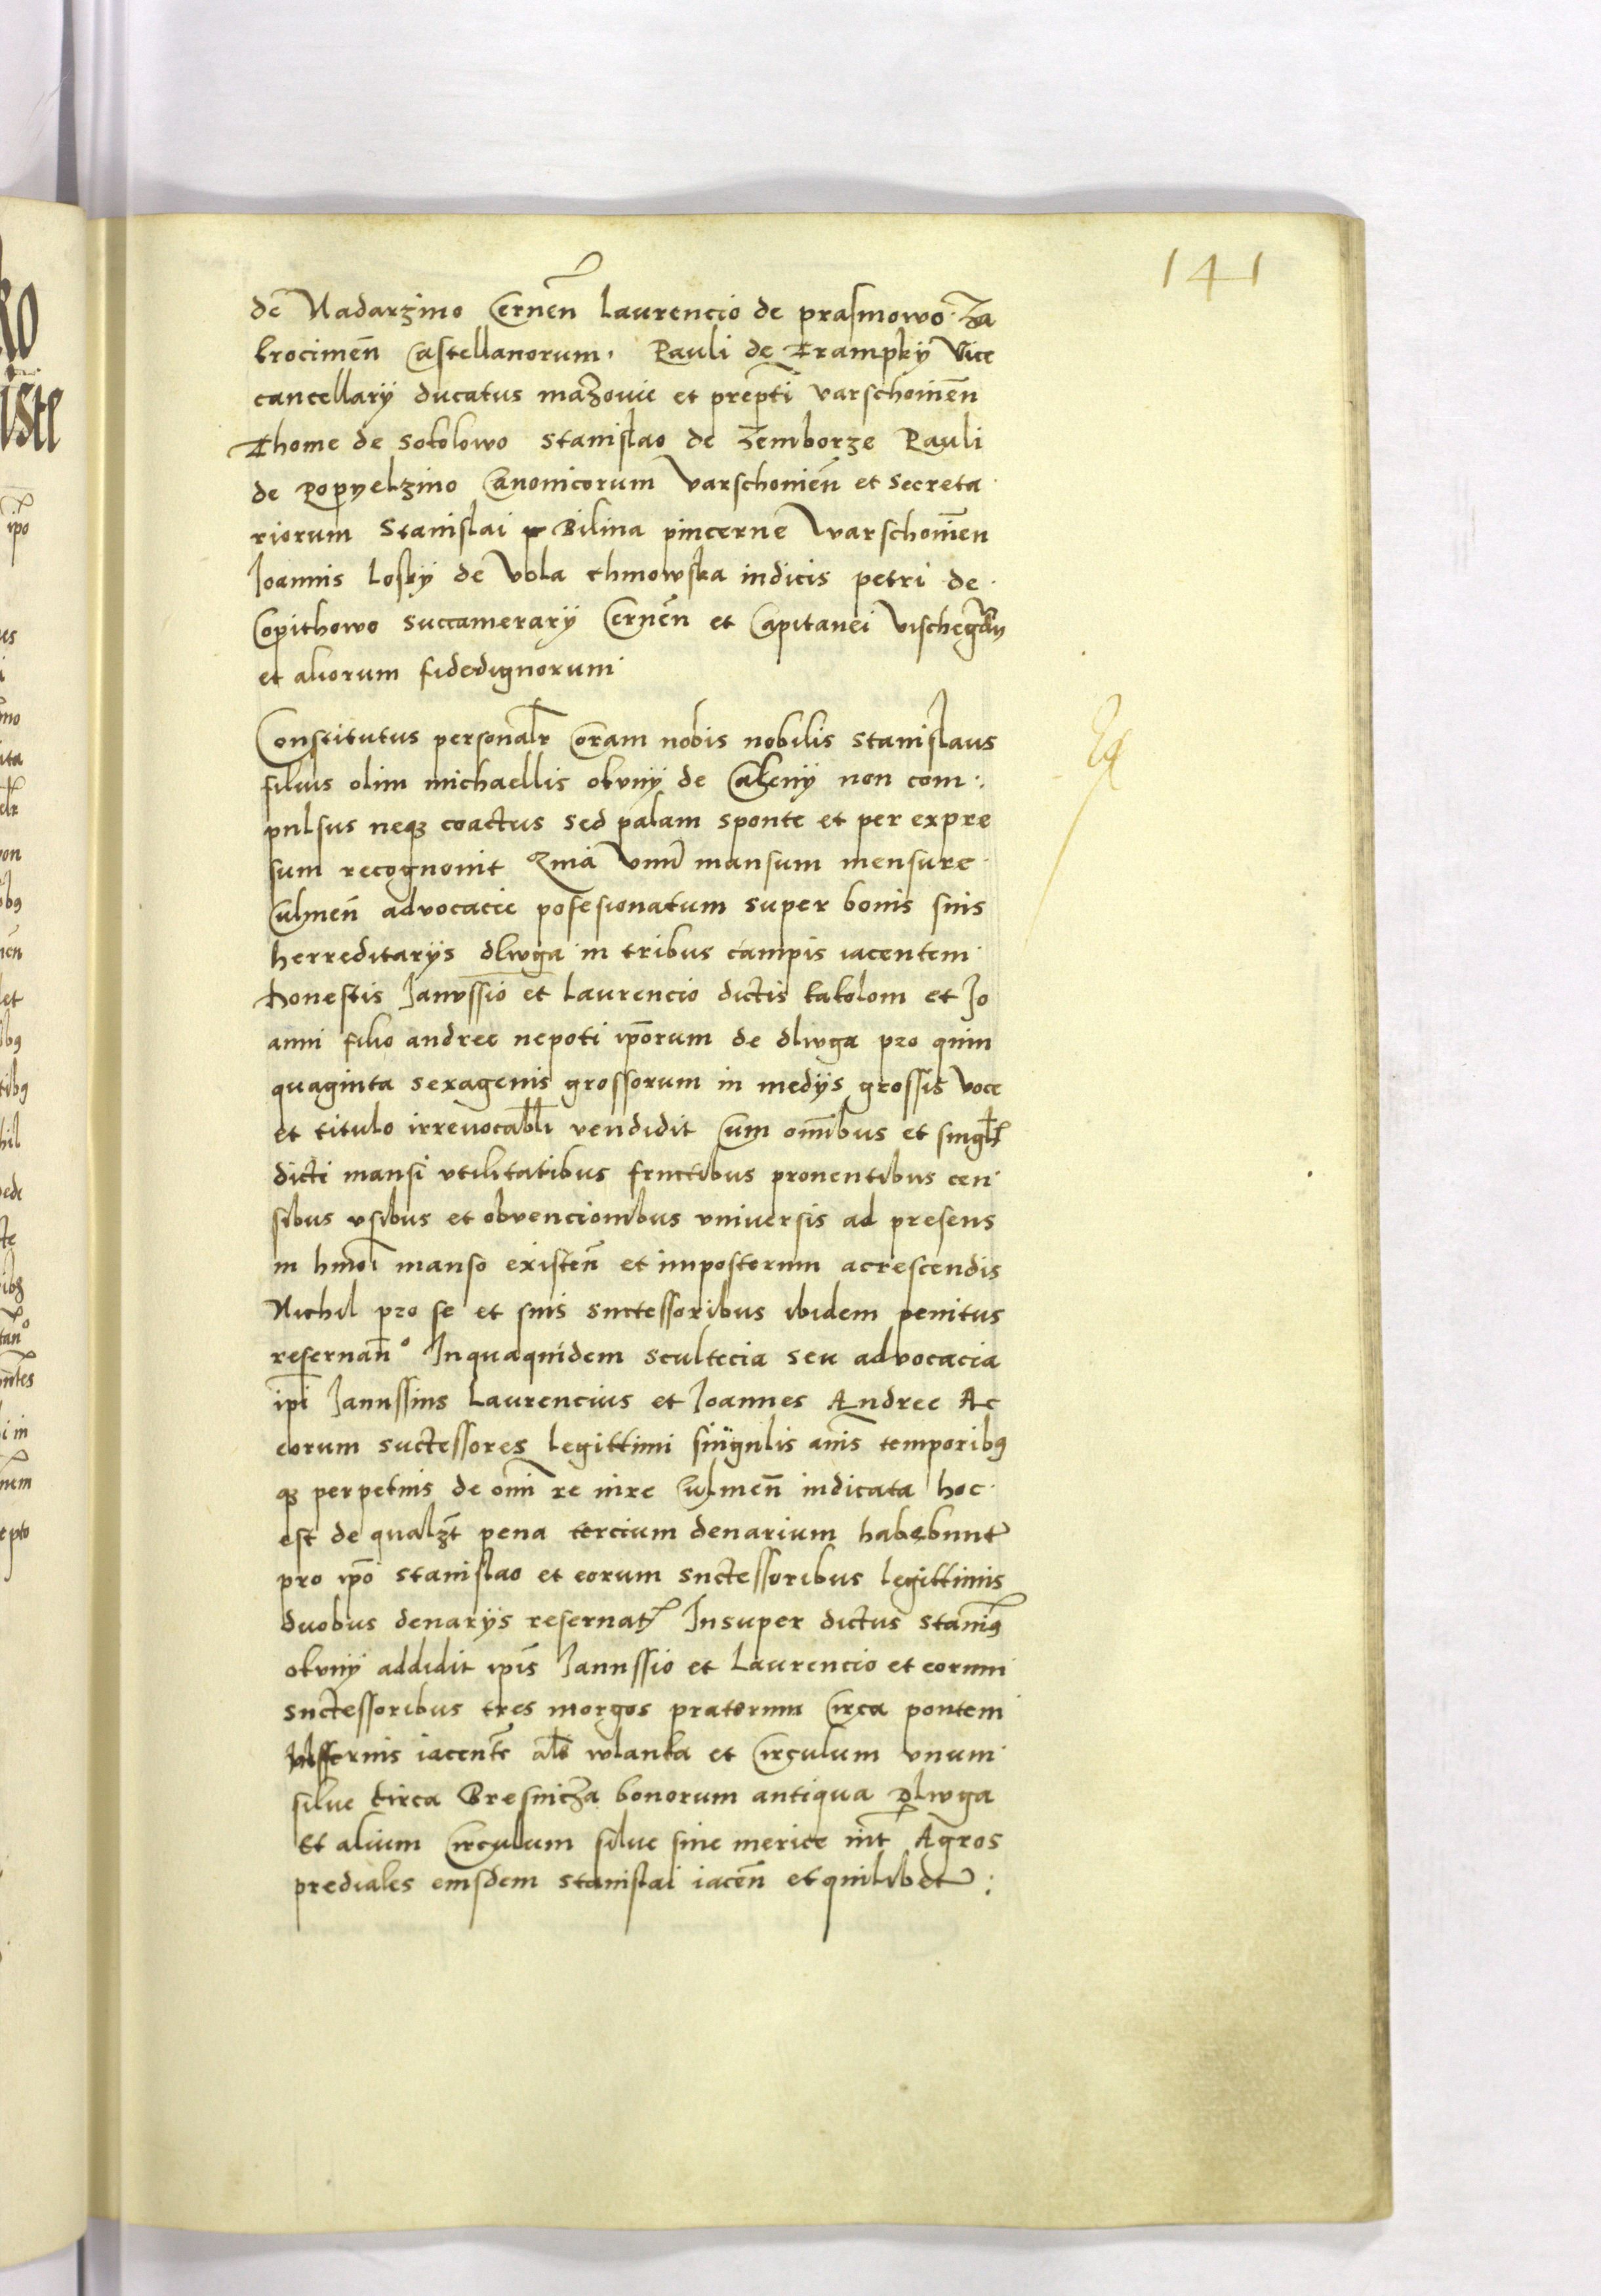 141
de Nadarzino Cernen̄ laurencio de prasmowo Za
krocimen̄ Castellanorum. Pauli de Trampky Vice
cancellarÿ ducatus mazouie et prep̄ti varschouien̄
Thome de sokolowo stanislao de Zemborze Pauli
de Popyelzino Canonicorum varschonien̄ et secreta
riorum stanislai Bilina pincerne warschonien̄
Joannis losky de vola chmowska iudicis petri de
Copithowo succamerarÿ Cernen̄ et Capitanei vischegrădn̄
et aliorum fidedignorum
Constitutus personalr̄ Coram nobis nobilis stanislaus
filius olim michaellis okunÿ de Cakenÿ non com:
pulsus neq₃ coactus sed palam sponte et per expre
sum recognouit Quia vnū mansum mensure
Culmen̄ advocacie posesionatum super bonis suis
herreditarÿs dlwga in tribus campis iacentem
Honestis Janvssio et laurencio dictis kakolom et Jo
anni filio andree nepoti ip̄orum de dlwga pro quin
quaginta sexagenis grossorum in medÿs grossis voce
et titulo irreuocabłł vendidit Cum om̄ibus et singł
dicti mansi vtilitatibus fructibus prouentibus cen
sibus vsibus et obvencionibus vniversis ad presens
in hmōi manso existen̄ et impostorum acrescendis
Nichil pro se et suis suctessoribus ibidem penitus
reseruan̄º Inquaquidem scultecia seu advocacia
ip̄i Janussius Laurencius et Joannes Andree Ac
eorum suctessores legittimi singulis an̄is temporib₉
q₃ perpetuis de om̄i re iure Culmen̄ iudicata hoc
est de qualz̄t pena tercium denarium habebunt
pro ip̄o stanislao et eorum suctessoribus legittimis
duobus denarÿs reseruat Insuper dictus stanis̄₉
okunÿ addidit ip̄is Janussio et Laurencio et eorum
suctessoribus tres morgos pratorum Circa pontem
iacent̄e als̄ wlanka et Circulum vnum
silue circa Bresnicza bonorum antiqua Dlwga
Et alium Circulum silue siue merice int̄ Agros
prediales eiusdem stanislai iacen̄ et quilibet :